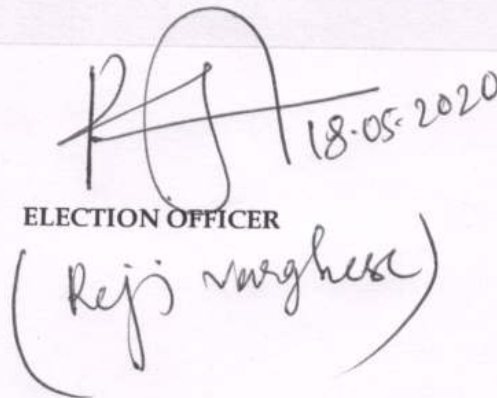 18.05.2020
ELECTION OFFICER
(Reji Varghese)